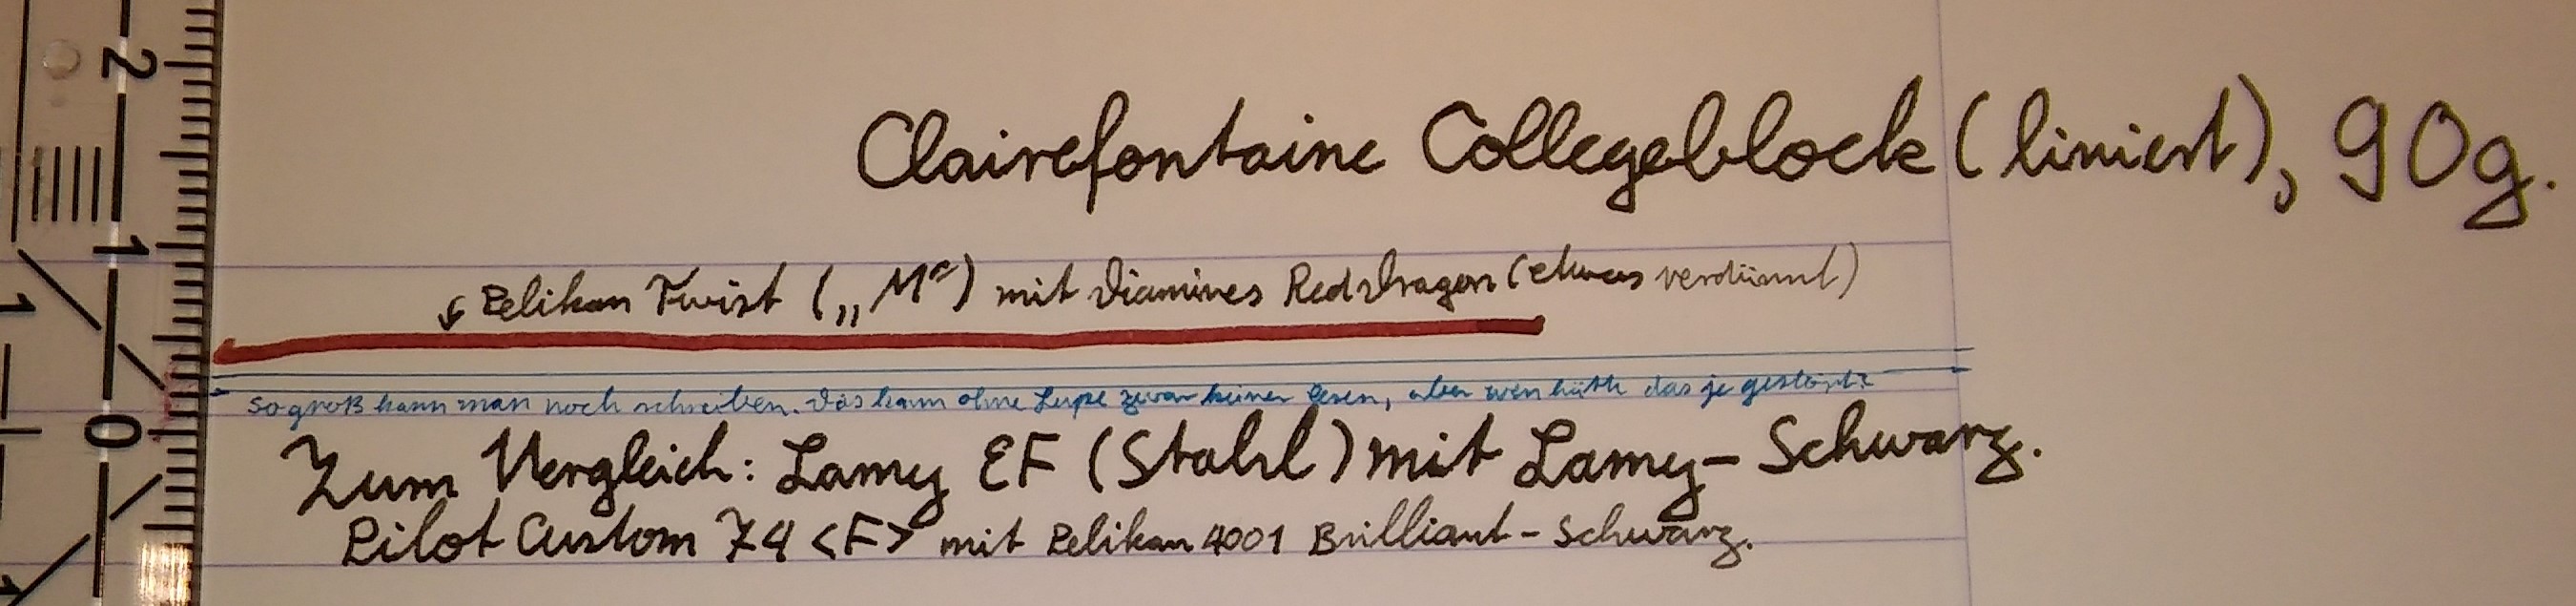 Clairefontaine Collegeblock (liniert), 90g.
Pelikan Twist („M“) mit Diamines Red Dragon (etwas verdünnt)
So groß kann man noch schreiben. Das kann ohne Lupe zwar keiner lesen, aber wen hätte das je gestört?
Zum Vergleich: Lamy EF (Stahl) mit Lamy-Schwarz.
Pilot Custom 74 <F> mit Pelikan 4001 Brilliant-Schwarz.
2
1
0
1